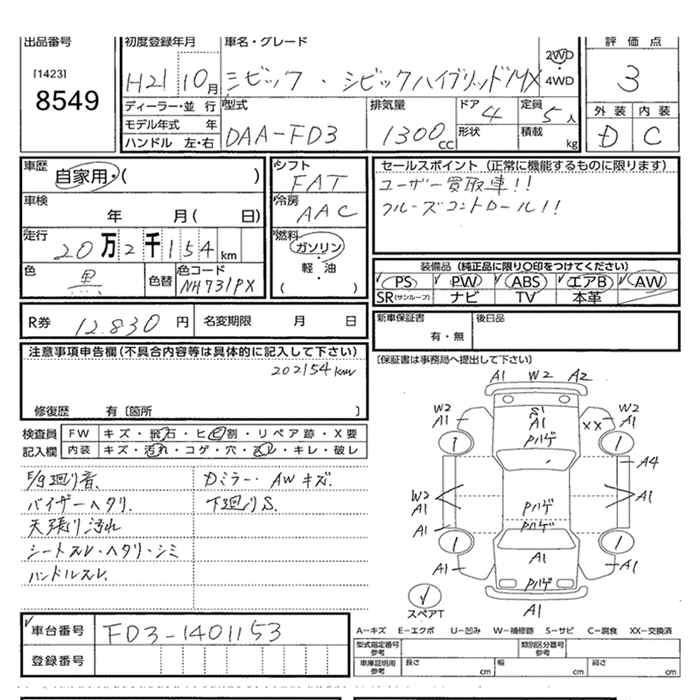 出品番号
[1423]
8549
初度登録年月
H21 10月
車名・グレード
シビック・シビックハイブリッドMX
2WD
4WD
評価点
3
外装 内装
D C
ディーラー・並行
モデル年式 年
ハンドル 左・右
型式
DAA-FD3
排気量
1300cc
ドア 4
形状
定員 5人
積載 kg
車歴
自家用・( )
車検
年 月( 日)
走行
20万2千154km
色 黒
色替
色コード
NH731PX
シフト
FAT
冷房
AAC
燃料
ガソリン
軽・油
( )
セールスポイント(正常に機能するものに限ります)
ユーザー買取車!!
クルーズコントロール!!
装備品(純正品に限り〇印をつけてください)
PS PW ABS エアB AW
SR(サンルーフ) ナビ TV 本革
R券 12.830円 名変期限 月 日
新車保証書
有・無
後日品
(保証書は事務局へ提出して下さい)
注意事項申告欄(不具合内容等は具体的に記入して下さい)
202154km
修復歴 有〔箇所 〕
検査員
記入欄
FW キズ・飛石・ヒビ割・リペア跡・X要
内装 キズ・汚れ・コゲ・穴・スレ・キレ・破レ
F/9廻り音.
バイザーヘタリ.
天張り汚れ
シートスレ・ヘタリ・シミ
ハンドルスレ.
Dミラー・AWキズ.
下廻りS.
A1 W2 A2
W2
A1
S1
A1
Pハゲ
W2
A1
XX
A4
W2
A1
Pハゲ
A1
A1
Pハゲ
A1
A1
A1
Pハゲ
A1
スペアT
A1
車台番号 FD3-1401153
登録番号
A―キズ E―エクボ U―凹み W―補修跡 S―サビ C―腐食 XX―交換済
型式指定番号
参考
類別区分番号
参考
車庫証明用
参考
長さ cm 幅 cm 高さ cm